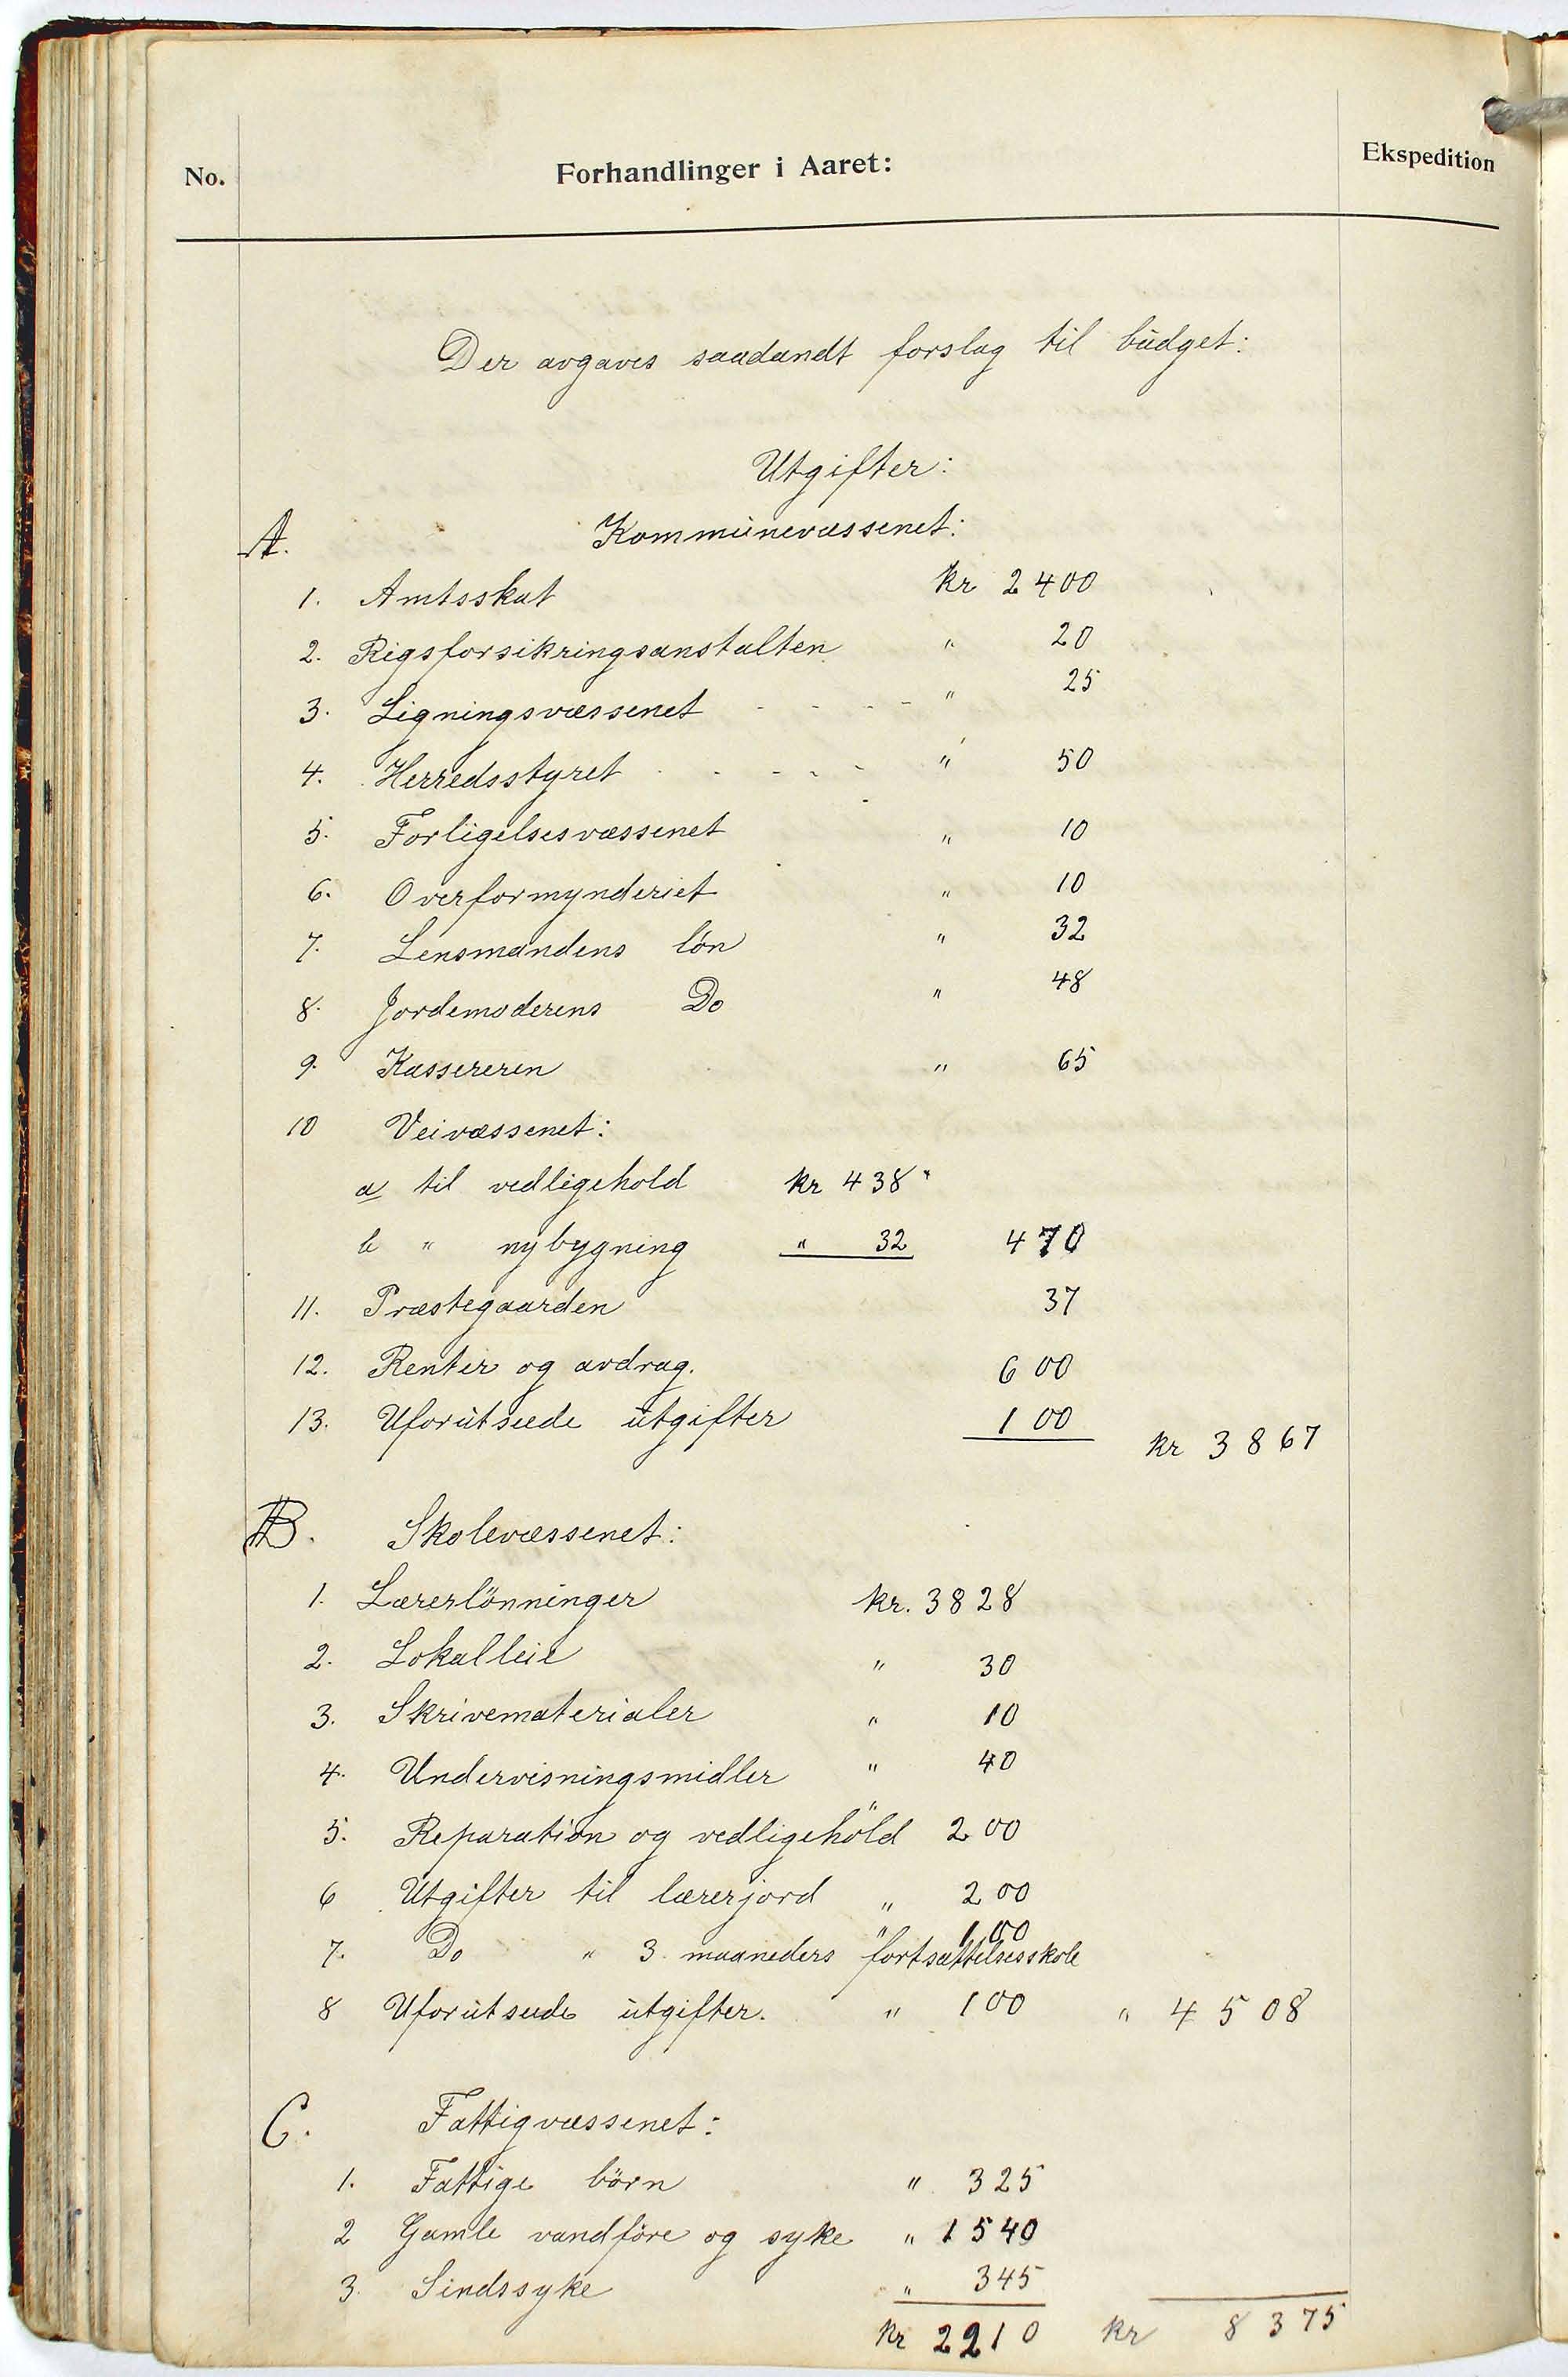 No. Forhandlinger i Aaret: Ekspedition
Der avgaves saadandt forslag til budget:
Utgifter:
A. Kommunevæssenet:
1. Amtsskat kr 2400
2. Rigsforsikringsanstalten " 20
3. Ligningsvæssenet - - - - " 25
4. Herredsstyret - - - - - " 50
5. Forligelsesvæssenet " 10
6. Overformynderiet " 10
7. Lensmandens lön " 32
8. Jordemoderens Do " 48
9. Kassereren " 65
10 Veivæssenet:
a til vedligehold kr 438
b " nybygning " 32 470
11. Præstegaarden 37
12. Renter og avdrag. 600
13. Uforutseede utgifter 100 kr 3867
B. Skolevæssenet:
1. Lærerlönninger kr. 3828
2. Lokalleie " 30
3. Skrivematerialer " 10
4. Undervisningsmidler " 40
5. Reparation og vedligehold " 200
6 Utgifter til lærerjord " 200
7. Do " 3 maaneders fortsættelsesskole " 100
8 Uforutseede utgifter. " 100 " 4508
C. Fattigvæssenet:
1. Fattige börn " 325
2 Gamle vandföre og syke " 1540
3. Sindssyke " 345
kr 2210 kr 8375